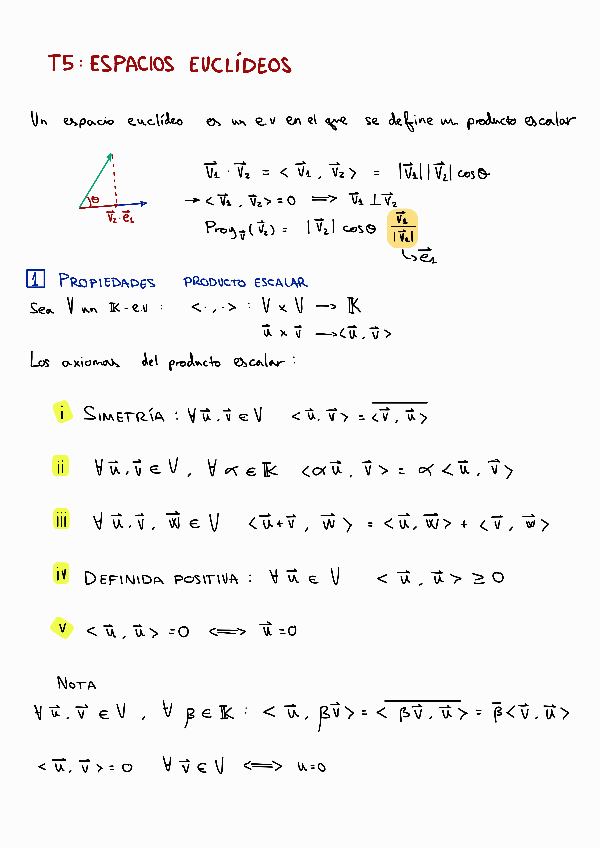 T5: ESPACIOS EUCLÍDEOS
Un espacio euclídeo es un e.v en el que se define un producto escalar
θ
v⃗₂·e⃗₁
v⃗₁ · v⃗₂ = < v⃗₁ , v⃗₂ > = |v⃗₁| |v⃗₂| cosθ
→ < v⃗₁ , v⃗₂ > = 0 ⟹ v⃗₁ ⊥ v⃗₂
Proy_v⃗ (v⃗₂) = |v⃗₂| cosθ v⃗₁/|v⃗₁|
↳ e⃗₁
1 PROPIEDADES PRODUCTO ESCALAR
Sea V un 𝕂-e.v : < · , · > : V × V → 𝕂
u⃗ × v⃗ → <u⃗, v⃗>
Los axiomas del producto escalar :
i SIMETRÍA : ∀ u⃗, v⃗ ∈ V <u⃗, v⃗> = \overline{<v⃗, u⃗>}
ii ∀ u⃗, v⃗ ∈ V, ∀ α ∈ 𝕂 <αu⃗, v⃗> = α <u⃗, v⃗>
iii ∀ u⃗, v⃗, w⃗ ∈ V <u⃗+v⃗, w⃗> = <u⃗, w⃗> + <v⃗, w⃗>
iv DEFINIDA POSITIVA : ∀ u⃗ ∈ V <u⃗, u⃗> ≥ 0
v <u⃗, u⃗> = 0 ⟺ u⃗ = 0
NOTA
∀ u⃗, v⃗ ∈ V, ∀ β ∈ 𝕂 : <u⃗, βv⃗> = \overline{<βv⃗, u⃗>} = β̄<v⃗, u⃗>
<u⃗, v⃗> = 0 ∀ v⃗ ∈ V ⟺ u = 0